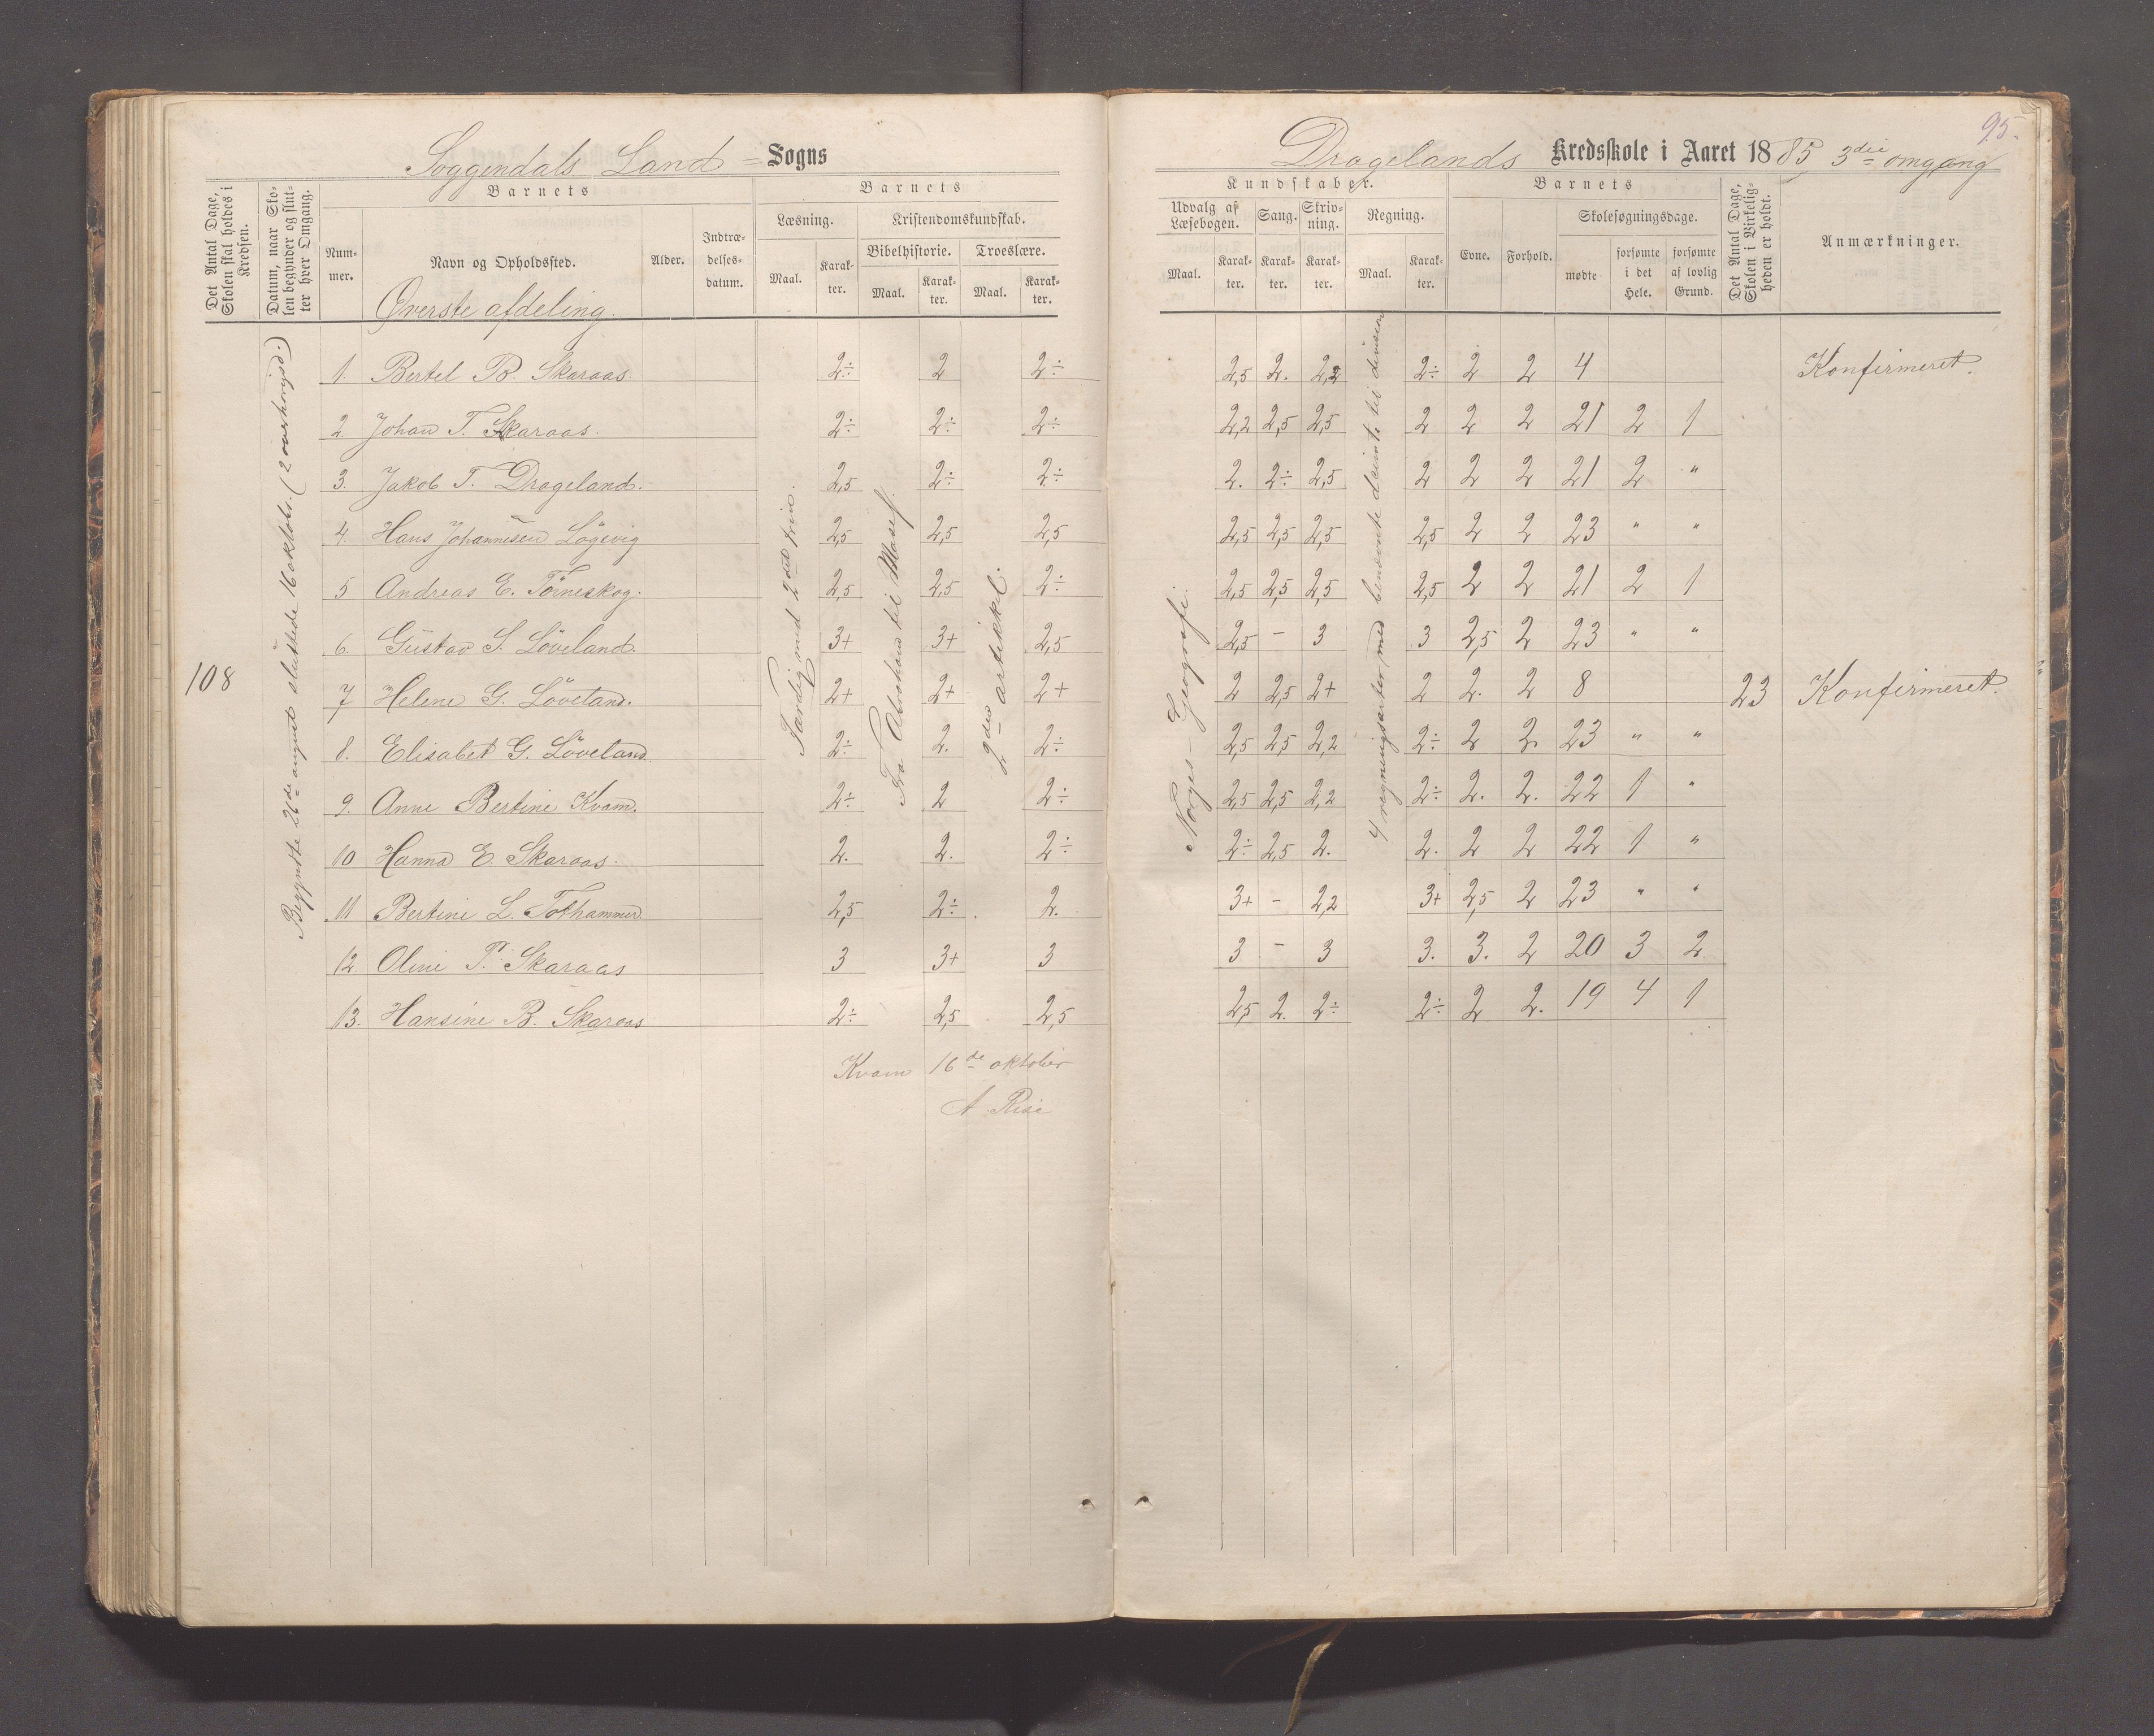 Soggendals Land - Sogns
Det Antal Dage, Skolen skal holdes i Kredsen.
Datum, naar Skolen begynder og slutter hver Omgang.
Barnets
Nummer.
Navn og Opholdssted.
Alder.
Indtrædelsesdatum.
Barnets
Læsning.
Maal.
Karakter.
Kristendomskundskab.
Bibelhistorie.
Maal.
Karakter.
Troeslære.
Maal.
Karakter.
Øverste afdeling.
108
Begyndte 26de august sluttede 16 oktobr.
Færdig med 2det
Fra Abraham til Moses.
2den artikkel.
1. Bertel B. Skaraas. 2÷ 2 2÷
2. Johan T. Skaraas. 2÷ 2÷ 2÷
3. Jakob T. Drageland. 2,5 2÷ 2÷
4. Hans Johannesen Lögevig 2,5 2,5 2,5
5 Andreas E. Törneskog. 2,5 2,5 2÷
6. Gustav S. Löveland. 3+ 3+ 2,5
7 Helene G. Löveland. 2+ 2+ 2+
8. Elisabet G. Löveland 2÷ 2. 2÷
9. Anne Bertine Kvam. 2÷ 2 2÷
10 Hanna E. Skaraas. 2. 2. 2÷
11 Bertine L. Tothammer 2,5 2÷ 2.
12. Oline T. Skaraas 3 3+ 3
13. Hansine B. Skaraas 2÷ 2,5 2,5
Kvam 16de oktober
A. Rise
95.
Dragelands Kredsskole i Aaret 1885, 3die omgang
Kundskaber.
Udvalg af Læsebogen.
Maal.
Karakter.
Sang.
Karakter.
Skrivning.
Karakter.
Regning.
Maal.
Karakter.
Barnets
Evne.
Forhold.
Skolesøgningsdage.
mødte
forsømte i det Hele.
forsømte af lovlig Grund.
Det Antal Dage, Skolen i Virkeligheden er holdt.
Anmærkninger.
Norges - Geografi.
4 regningsarter med benevnte
2,5 2. 2,2 2÷ 2 2 4 Konfirmeret.
2,2 2,5 2,5 2 2 2 21 2 1
2. 2÷ 2,5 2 2 2 21 2 "
2,5 2,5 2,5 2,5 2 2 23 " "
2,5 2,5 2,5 2,5 2 2 21 2 1
2,5 - 3 3 2,5 2 23 " "
2 2,5 2+ 2 2. 2 8 23 Konfirmeret.
2,5 2,5 2,2 2÷ 2 2. 23 " "
2,5 2,5 2,2 2÷ 2. 2. 22 1 "
2÷ 2,5 2. 2. 2 2 22 1 "
3+ - 2,2 3+ 2,5 2 23 " "
3 - 3 3. 3. 2 20 3 2.
2,5 2. 2÷ 2÷ 2 2. 19 4 1